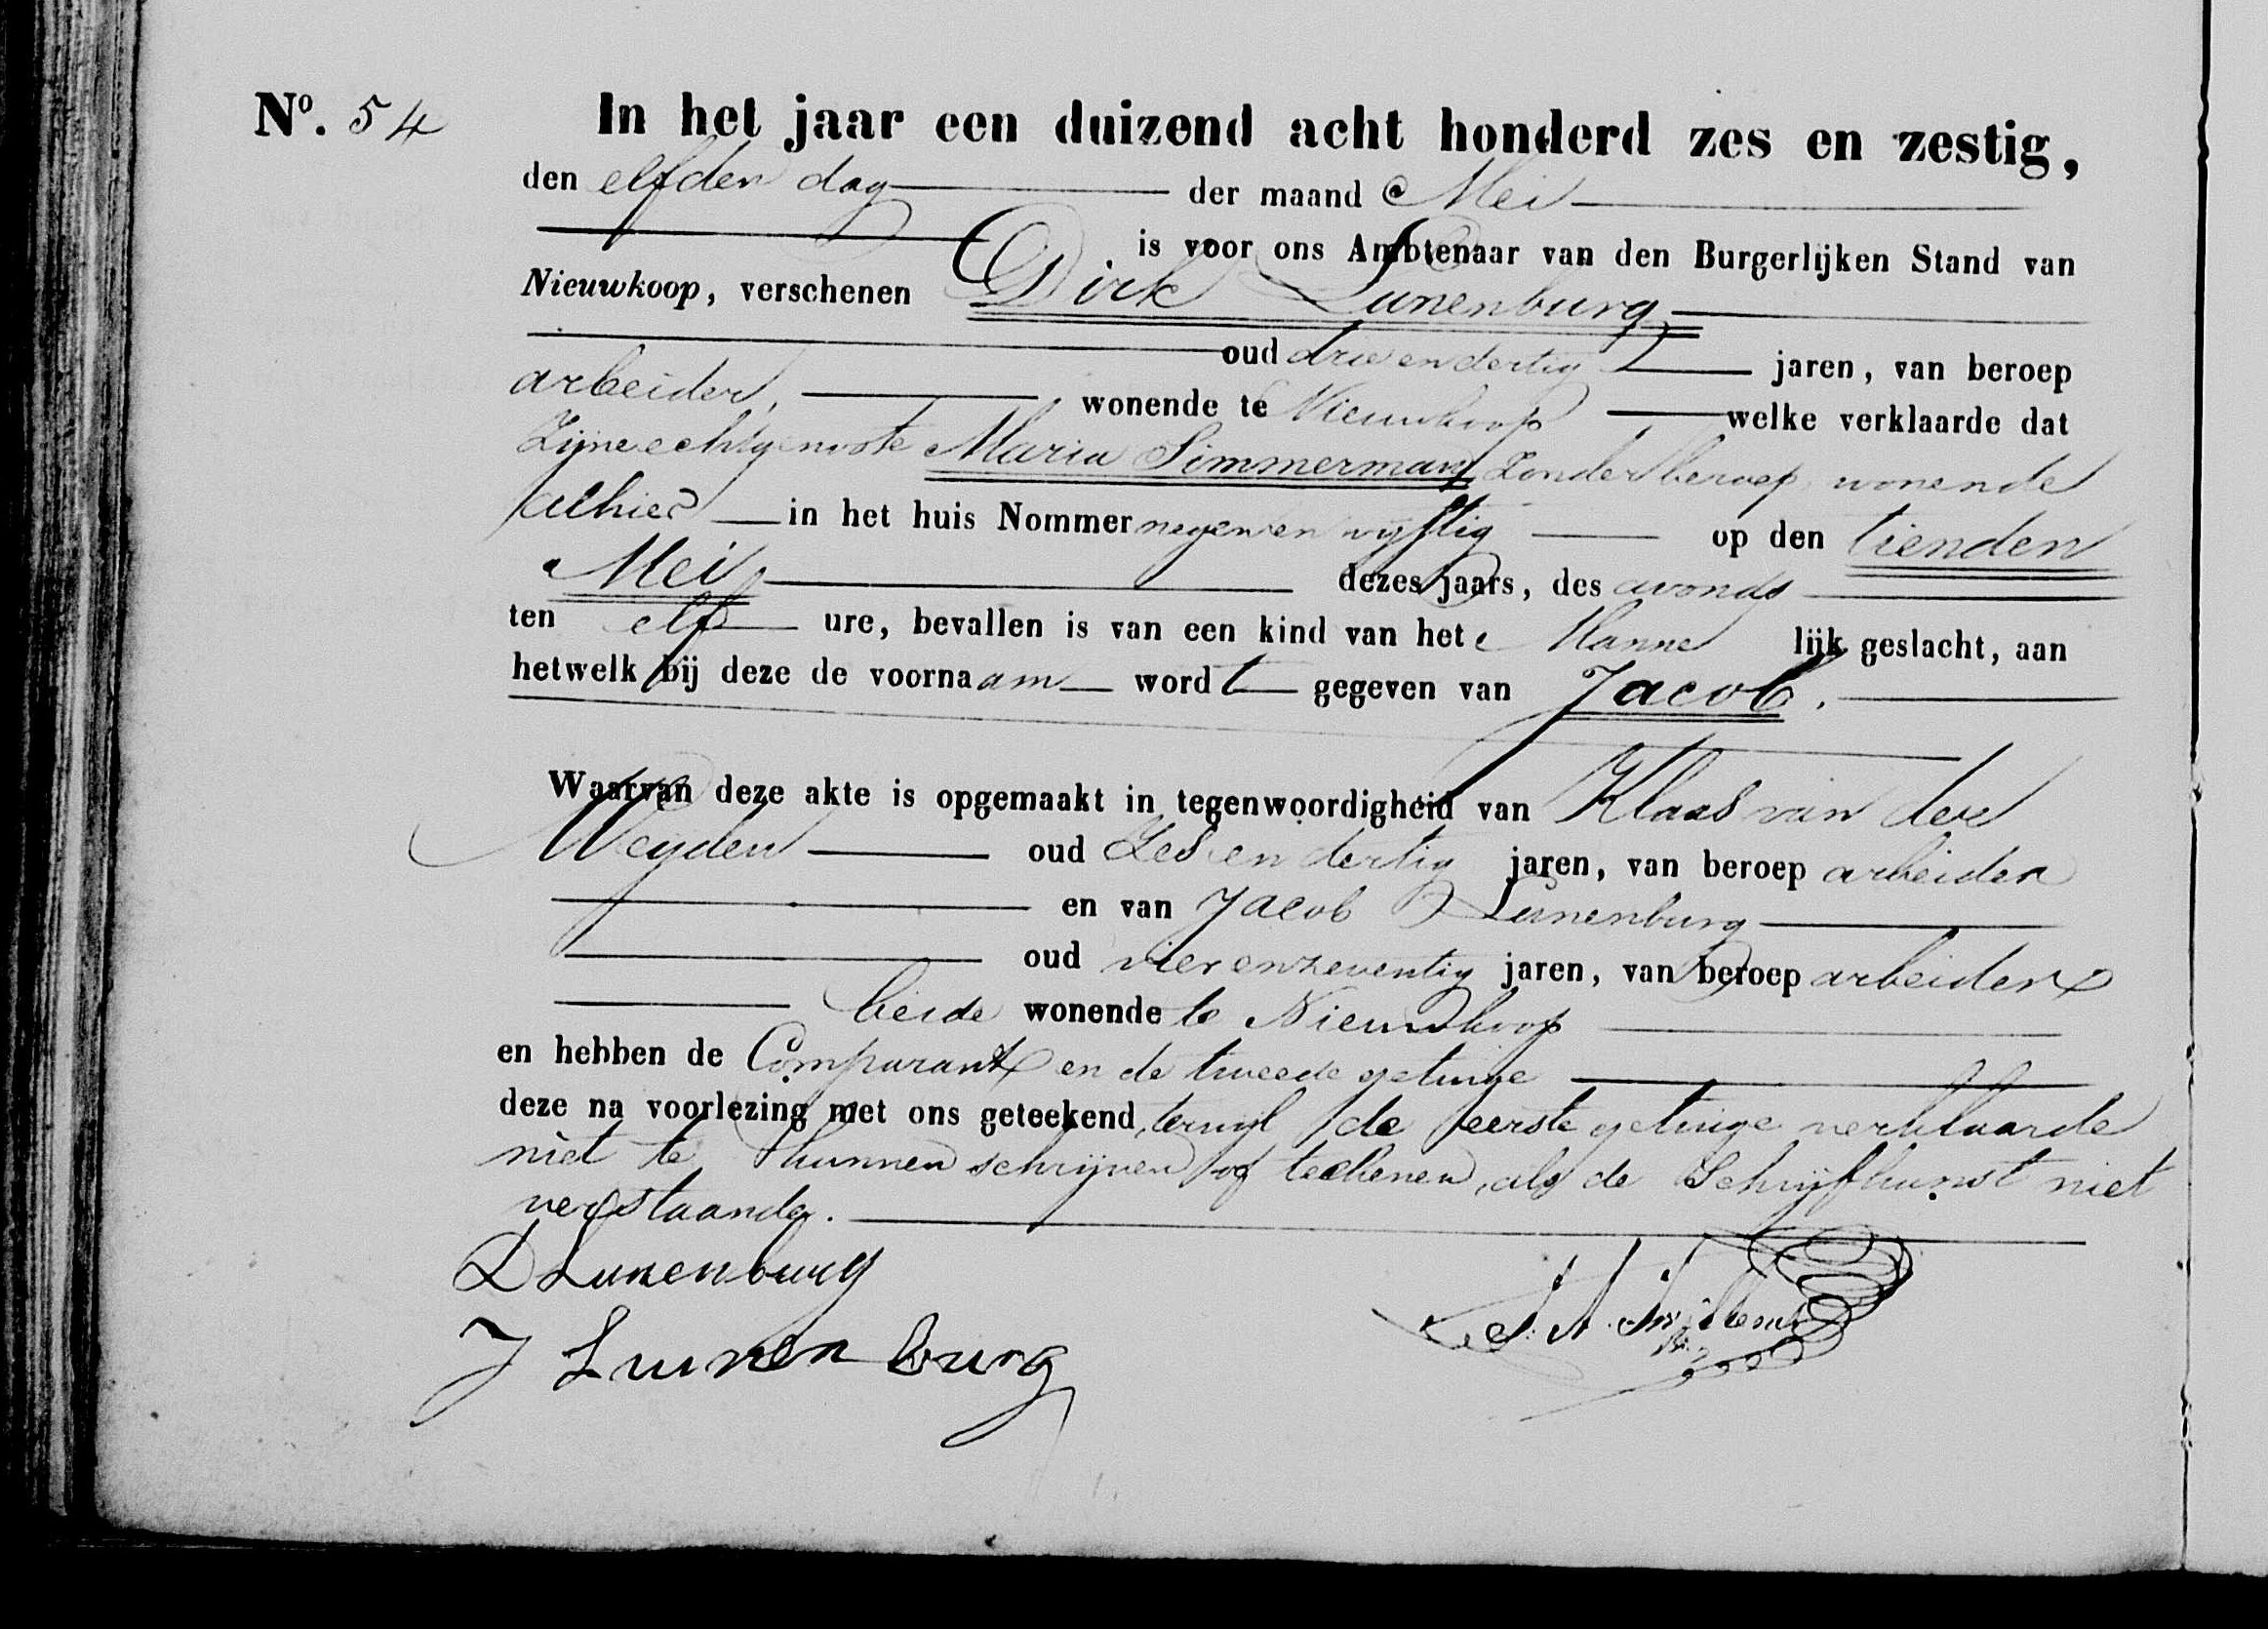 No. 54 In het jaar een duizend acht honderd zes en zestig,
den elfden dag der maand Mei
is voor ons Ambtenaar van den Burgerlijken Stand van
Nieuwkoop, verschenen Dirk Lunenburg
oud drie en dertig jaren, van beroep
arbeider, wonende te Nieuwkoop welke verklaarde dat
Zijne echtgenoote Maria Simmerman, Zonder beroep, wonende
alhier in het huis Nommer negen en vyftig op den tienden
Mei dezes jaars, des avonds
ten elf ure, bevallen is van een kind van het Manne lijk geslacht, aan
hetwelk bij deze de voornaam wordt gegeven van Jacob.
Waarvan deze akte is opgemaakt in tegenwoordigheid van Klaas van der
Weyden oud Zes en dertig jaren, van beroep arbeider
en van Jacob Lunenburg
oud vier en zeventig jaren, van beroep arbeider
beide wonende te Nieuwkoop
en hebben de Comparant en de tweede getuige
deze na voorlezing met ons geteekend, terwyl de eerste getuige verklaarde
niet te kunnen schrijven of teekenen, als de Schrijfkunst niet
verstaande.
D Lunenburg
J Lunenburg